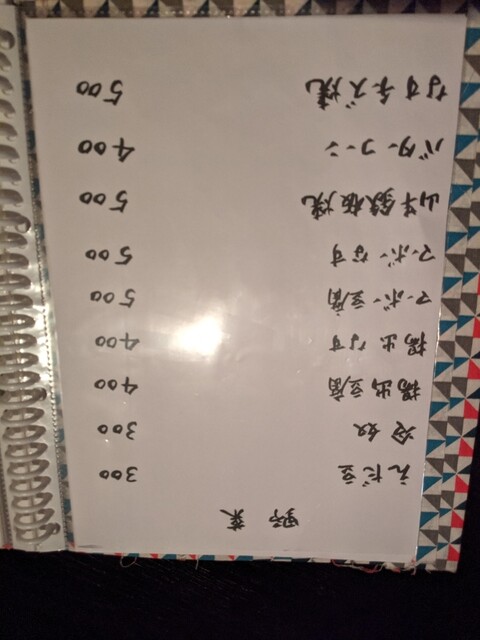 野菜
えだ豆 300
冷奴 300
揚出豆腐 400
揚出なす 400
マーボー豆腐 500
マーボーなす 500
山芋鉄板焼 500
バターコーン 400
なすチーズ焼 500